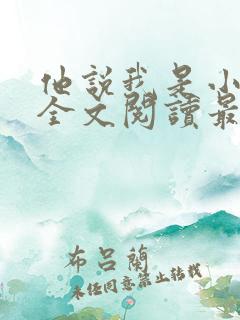 他說我是小
全文閱讀最
布呂蘭
未经同意禁止转载